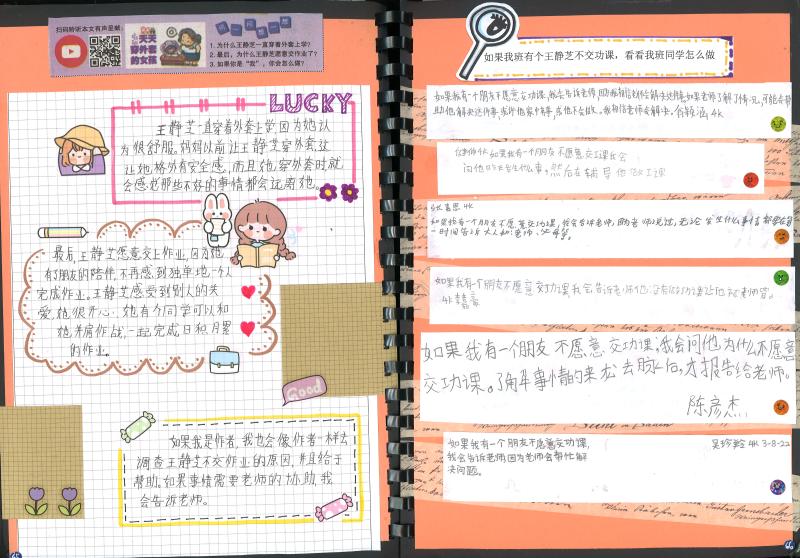 扫码聆听本文有声呈献:
天天
穿外套
的女孩
想一想
1. 为什么王静芝一直穿着外套上学?
2. 最后,为什么王静芝愿意交作业了?
3. 如果你是“我”,你会怎么做?
LUCKY
王静芝一直穿着外套上学,因为她认
为很舒服。妈妈以前让王静芝穿外套,这
让她格外有安全感,而且他穿外套时,就
会感觉那些不好的事情都会远离她。
最后,王静芝愿意交上作业,因为她
有了朋友的陪伴,不再感到独单地一个人
完成作业。王静芝感受到别人的关
爱,她很开心。她有个同学可以和
她并肩作战,一起完成日积月累
的作业。
Good
如果我是作者,我也会像作者一样去
调查王静芝不交作业的原因,并且给于
帮助。如果事情需要老师的协助,我
会告诉老师。
如果我班有个王静芝不交功课,看看我班同学怎么做
如果我有一个朋友不愿意交功课,我会告诉老师,
助他解决这件事
4K
如果我有一个朋友不愿意交功课我会
问他昨天发生什么事,然后在辅导他做功课
4K
如果我有一个朋友不愿意交功课,我会告诉老师,因为老师说过,无论发生什么事情都要在第
一时间告诉大人如:老师、父母等。
如果我有一个朋友不愿意交功课,我会告诉老师他没有做功课
如果我有一个朋友不愿意交功课,我会问他为什么不愿意
交功课。了解事情的来龙去脉后,才报告给老师。
陈彦杰
如果我有一个朋友不愿意交功课,
吴珍羚 4K 3-8-22
我会告诉老师因为老师会帮忙解
决问题。